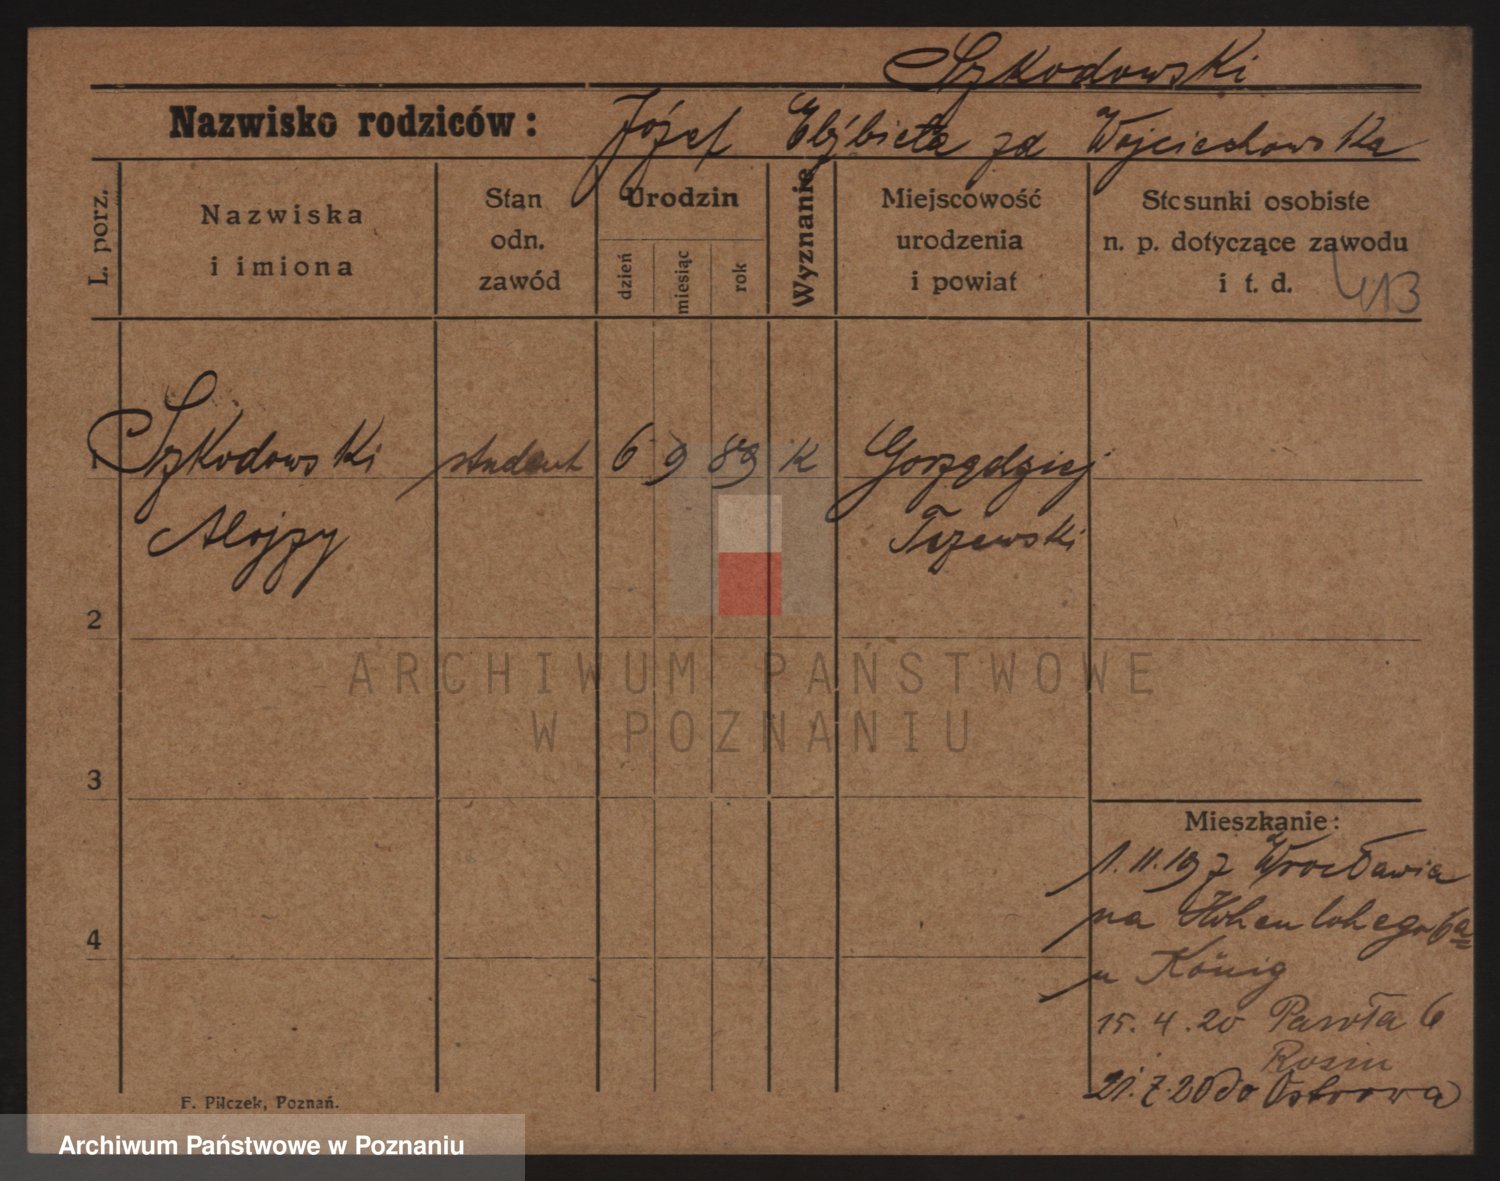 Szkodowski
Nazwisko rodziców: Józef Elżbieta zd Wojciechowska
L. porz.
Nazwiska
i imiona
Stan
odn.
zawód
Urodzin
dzień
miesiąc
rok
Wyznanie
Miejscowość
urodzenia
i powiat
Stosunki osobiste
n. p. dotyczące zawodu
i t. d.
413
1 Szkodowski student 6 9 89 K Gorzędziej
Alojzy Tczewski
2
3
4
Mieszkanie:
1.11.19 z Wrocławia
na Hohenlohego 6a
u König
15.4.20 Pawła 6
Rosin
21.7.20 do Ostrowa
F. Pilczek, Poznań.
ARCHIWUM PAŃSTWOWE
W POZNANIU
Archiwum Państwowe w Poznaniu